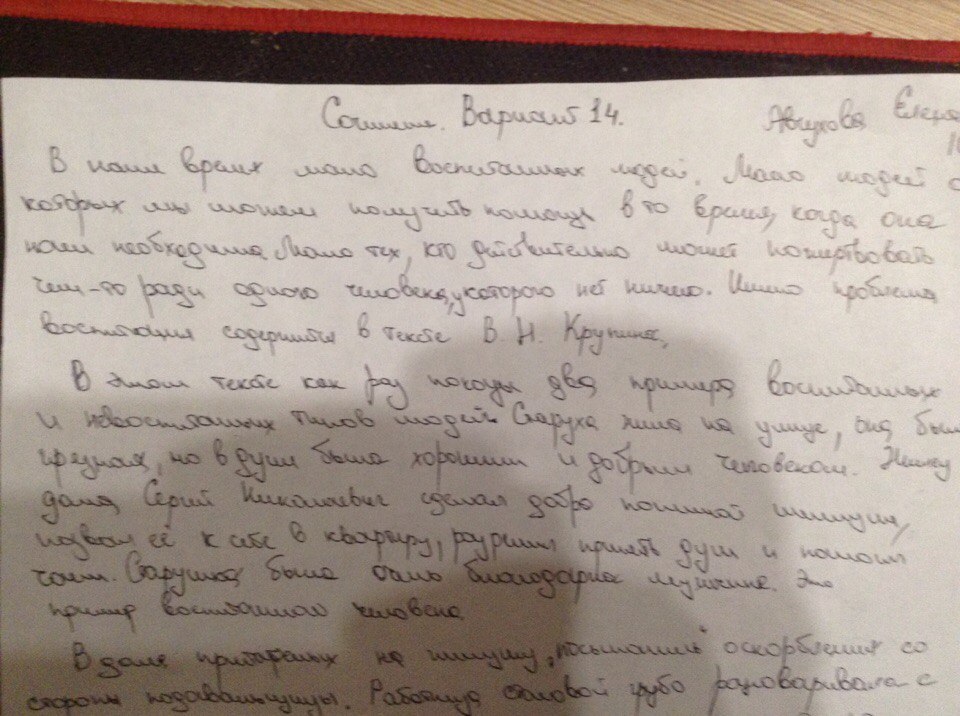 Сочинение. Вариант 14.
Авчухова Елена
В наше время мало воспитанных людей. Мало людей от
которых мы можем получить помощь в то время, когда она
нам необходима. Мало тех, кто действительно может пожертвовать
чем-то ради одного человека, у которого нет ничего. Именно проблема
воспитания содержится в тексте В. Н. Крупина.
В этом тексте как раз показан два примера воспитанных
и невоспитанных типов людей. Старуха жила на улице, она был
грязная, но в душе была хорошим и добрым человеком.
Сергей Николаевич сделал добро пожилой женщине,
позвал её к себе в квартиру, разрешил принять душ и напоил
чаем. Старушка была очень благодарна мужчине. Это
пример воспитанного человека
В доме престарелых на женщину "посыпались" оскорбления со
стороны подавальщицы. Работница столовой грубо разговаривала с